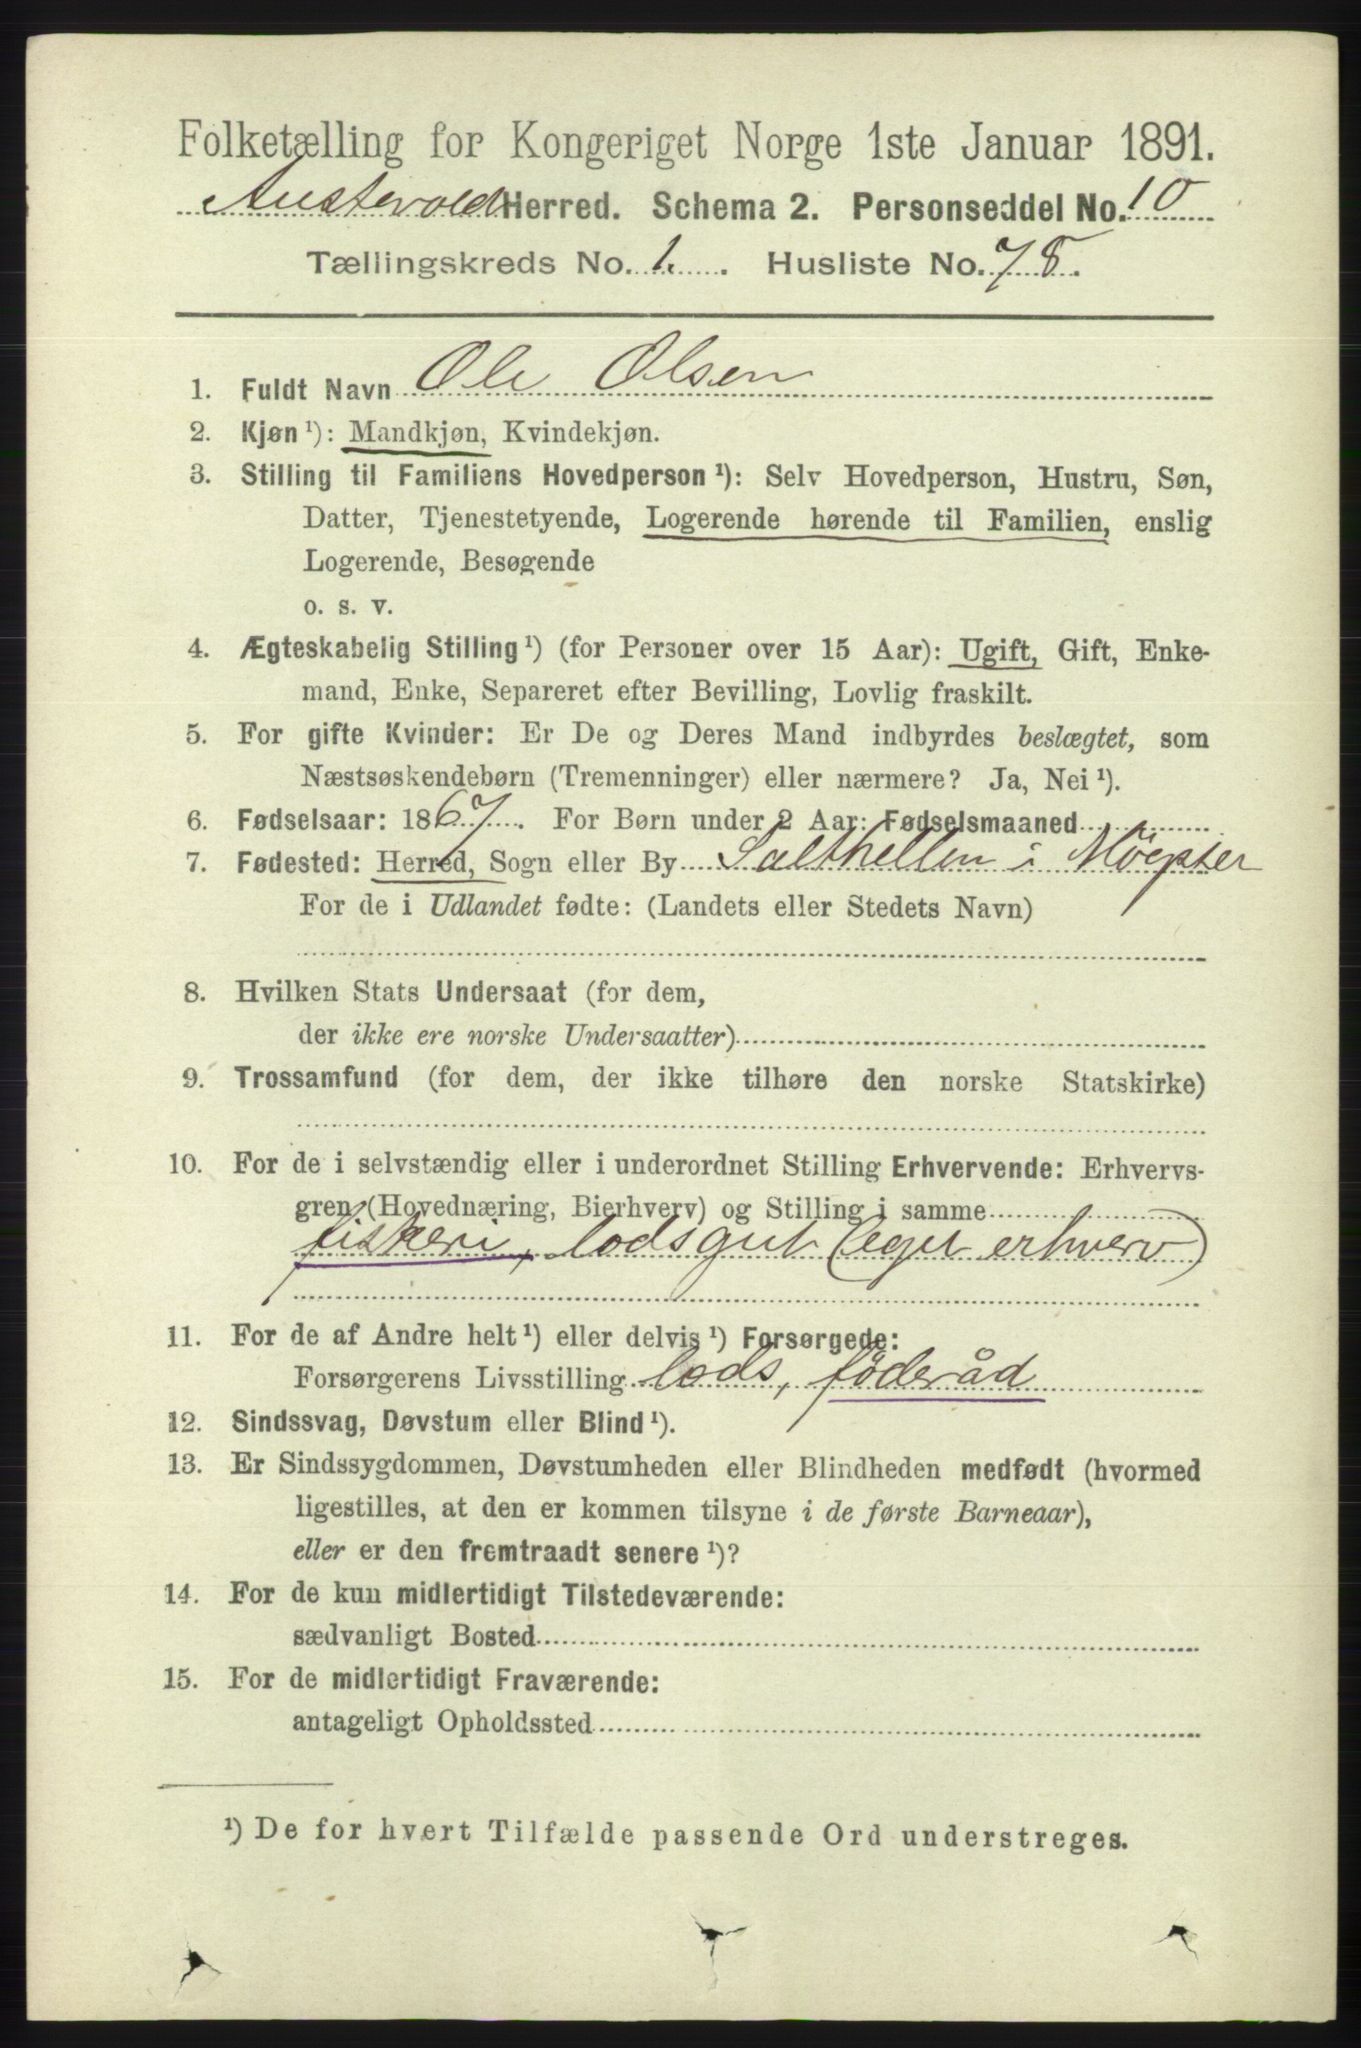 Folketælling for Kongeriget Norge 1ste Januar 1891.
Austevold Herred. Schema 2. Personseddel No. 10
Tællingskreds No. 1. Husliste No. 78.
1. Fuldt Navn Ole Olsen
2. Kjøn¹): Mandkjøn, Kvindekjøn.
3. Stilling til Familiens Hovedperson¹): Selv Hovedperson, Hustru, Søn,
Datter, Tjenestetyende, Logerende hørende til Familien, enslig
Logerende, Besøgende
o. s. v.
4. Ægteskabelig Stilling¹) (for Personer over 15 Aar): Ugift, Gift, Enke-
mand, Enke, Separeret efter Bevilling, Lovlig fraskilt.
5. For gifte Kvinder: Er De og Deres Mand indbyrdes beslægtet, som
Næstsøskendebørn (Tremenninger) eller nærmere? Ja, Nei¹).
6. Fødselsaar: 1867. For Børn under 2 Aar: Fødselsmaaned
7. Fødested: Herred, Sogn eller By Salthellen i Möxster
For de i Udlandet fødte: (Landets eller Stedets Navn)
8. Hvilken Stats Undersaat (for dem,
der ikke ere norske Undersaatter)
9. Trossamfund (for dem, der ikke tilhøre den norske Statskirke)
10. For de i selvstændig eller i underordnet Stilling Erhvervende: Erhvervs-
gren (Hovednæring, Bierhverv) og Stilling i samme
fiskeri, lodsgut (eget erhverv)
11. For de af Andre helt¹) eller delvis¹) Forsørgede:
Forsørgerens Livsstilling lods, föderåd
12. Sindssvag, Døvstum eller Blind¹).
13. Er Sindssygdommen, Døvstumheden eller Blindheden medfødt (hvormed
ligestilles, at den er kommen tilsyne i de første Barneaar),
eller er den fremtraadt senere¹)?
14. For de kun midlertidigt Tilstedeværende:
sædvanligt Bosted
15. For de midlertidigt Fraværende:
antageligt Opholdssted
¹) De for hvert Tilfælde passende Ord understreges.